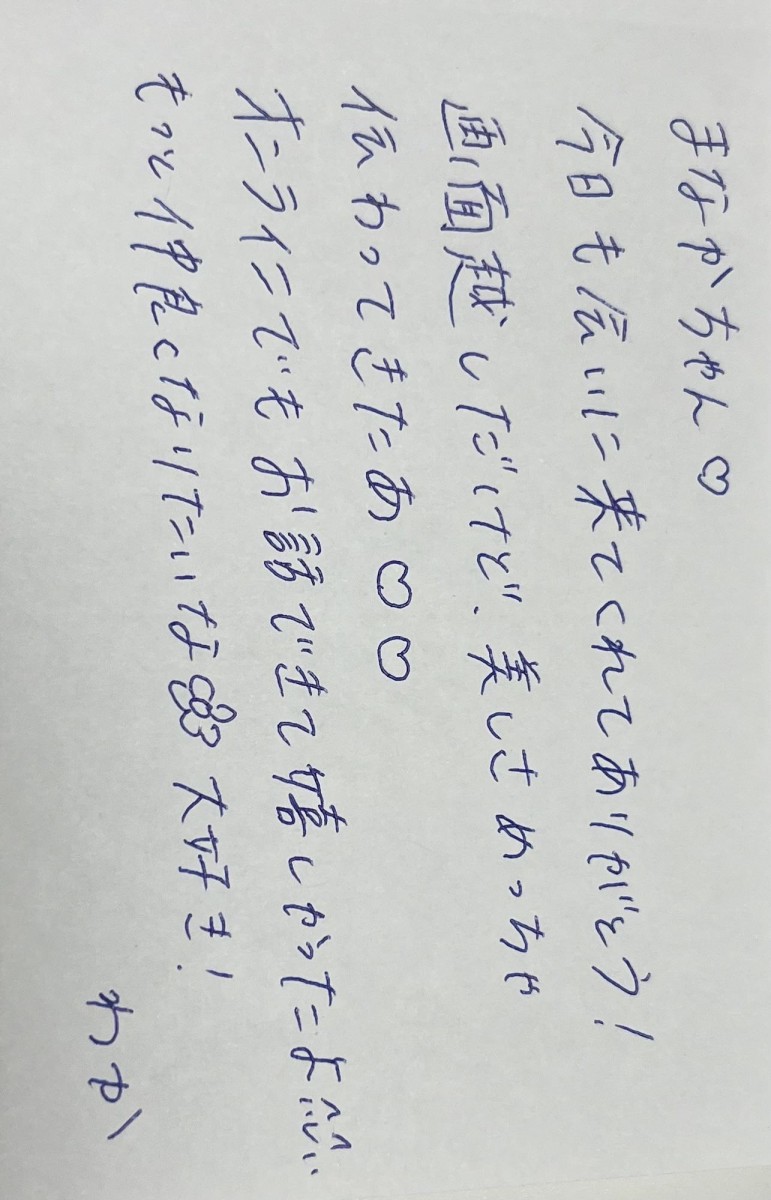 まなかちゃん♡
今日も伝いに来てくれてありがとう!
画面越しだけど、美しさめっちゃ
伝わってきたあ♡♡
オンラインでもお話できて嬉しかったよ
もっと仲良くなりたいな 大好き!
わか